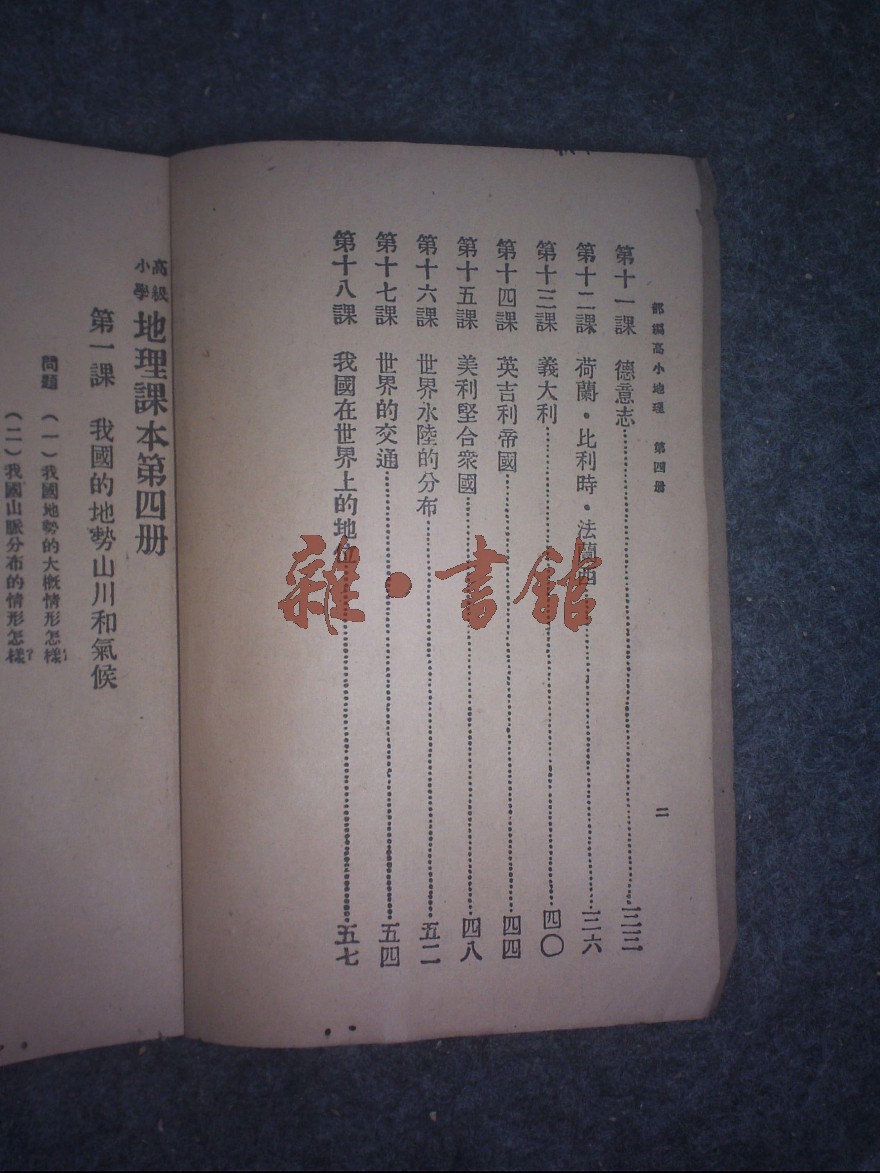 部編高小地理　第四册
二
第十一課　德意志……三三
第十二課　荷蘭·比利時·法蘭西……三六
第十三課　義大利……四〇
第十四課　英吉利帝國……四四
第十五課　美利堅合衆國……四八
第十六課　世界水陸的分布……五二
第十七課　世界的交通……五四
第十八課　我國在世界上的地位……五七
高級小學　地理課本第四册
第一課　我國的地勢山川和氣候
問題　（一）我國地勢的大概情形怎樣？
（二）我國山脈分布的情形怎樣？
雜·書館